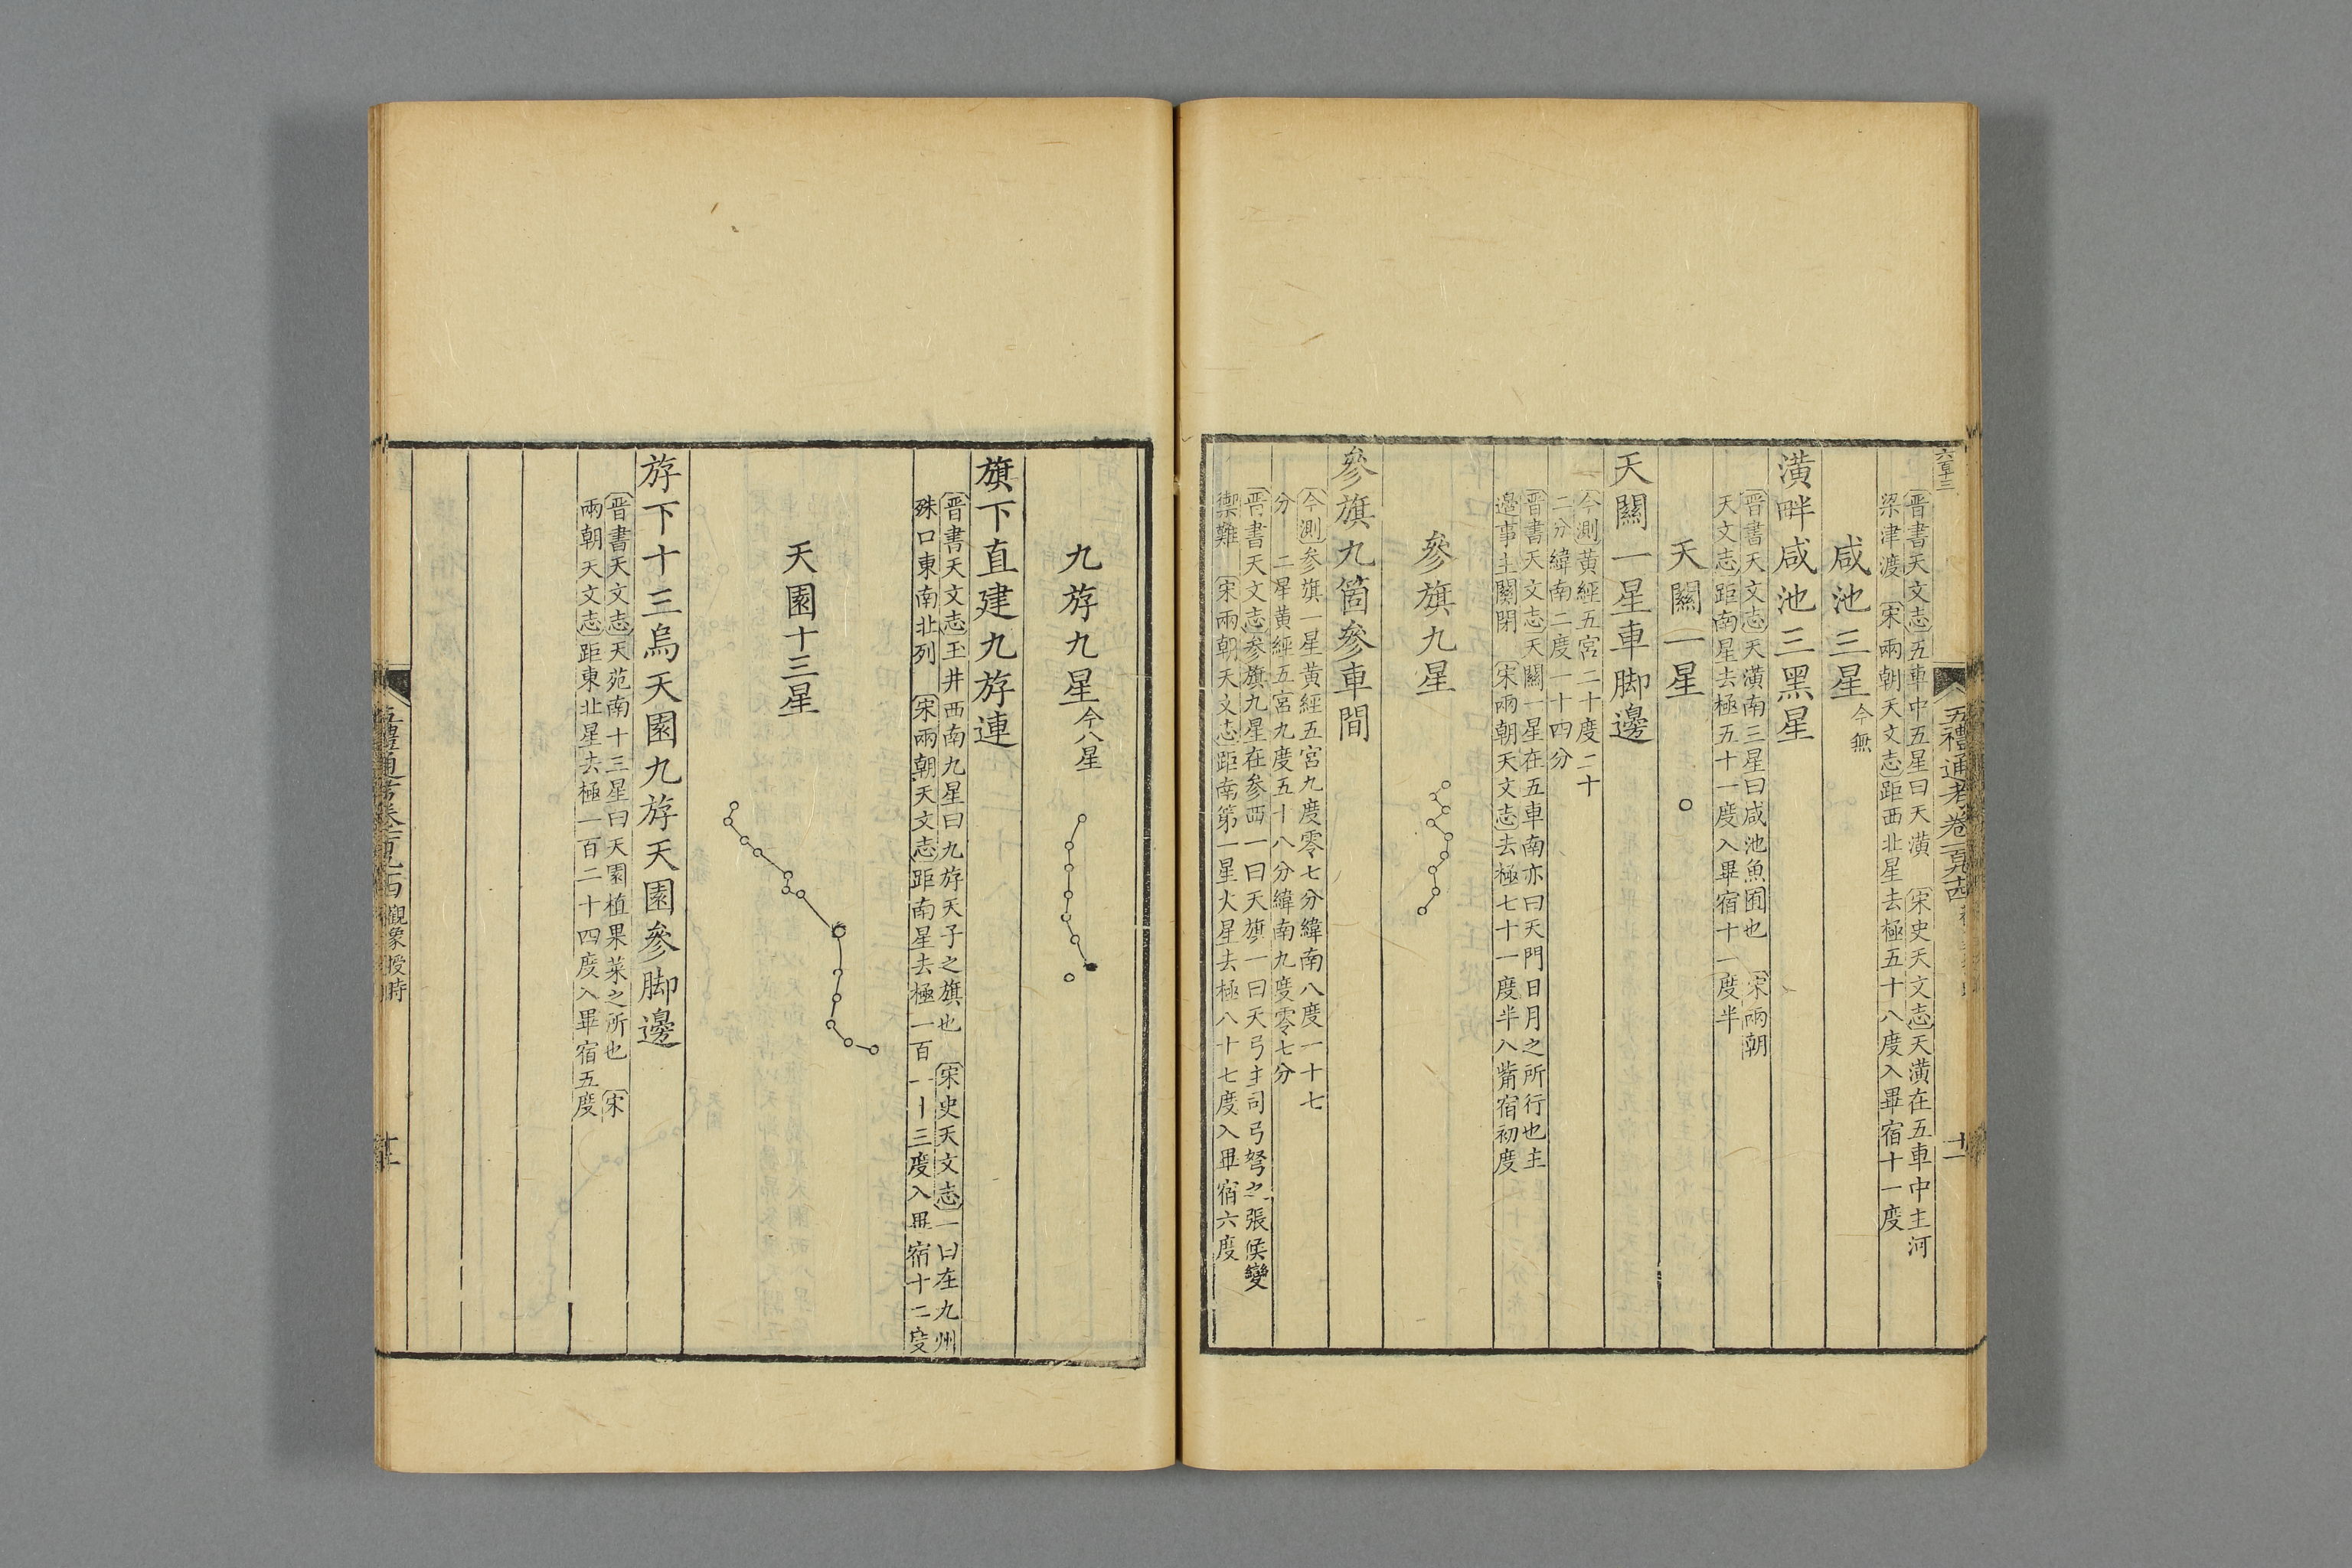 六百十三
五禮通考卷一百九十四
十一
晋書天文志五車中五星曰天潢　宋史天文志天潢在五車中主河
梁津渡　宋兩朝天文志距西北星去極五十八度入畢宿十一度
咸池三星今無
潢畔咸池三黑星
晋書天文志天潢南三星曰咸池魚囿也　宋兩朝
天文志距南星去極五十一度入畢宿十一度半
天關一星
天關一星車脚邊
今測黃經五宮二十度二十
二分緯南二度一十四分
晋書天文志天關一星在五車南亦曰天門日月之所行也主
邉事主關閉　宋兩朝天文志去極七十一度半八觜宿初度
參旗九星
參旗九箇參車間
今測參旗一星黃經五宮九度零七分緯南八度一十七
分　二星黃經五宮九度五十八分緯南九度零七分
晋書天文志參旗九星在參西一曰天旗一曰天弓主司弓弩之張候變
禦難　宋兩朝天文志距南第一星火星去極八十七度入畢宿六度
九斿九星今八星
旗下直建九斿連
晋書天文志玉井西南九星曰九斿天子之旗也　宋史天文志一曰在九州
殊口東南北列　宋兩朝天文志距南星去極一百一十三度入畢宿十二度
天園十三星
斿下十三烏天園九斿天園參脚邊
晋書天文志天苑南十三星曰天園植果菜之所也　宋
兩朝天文志距東北星去極一百二十四度入畢宿五度
觀象授時